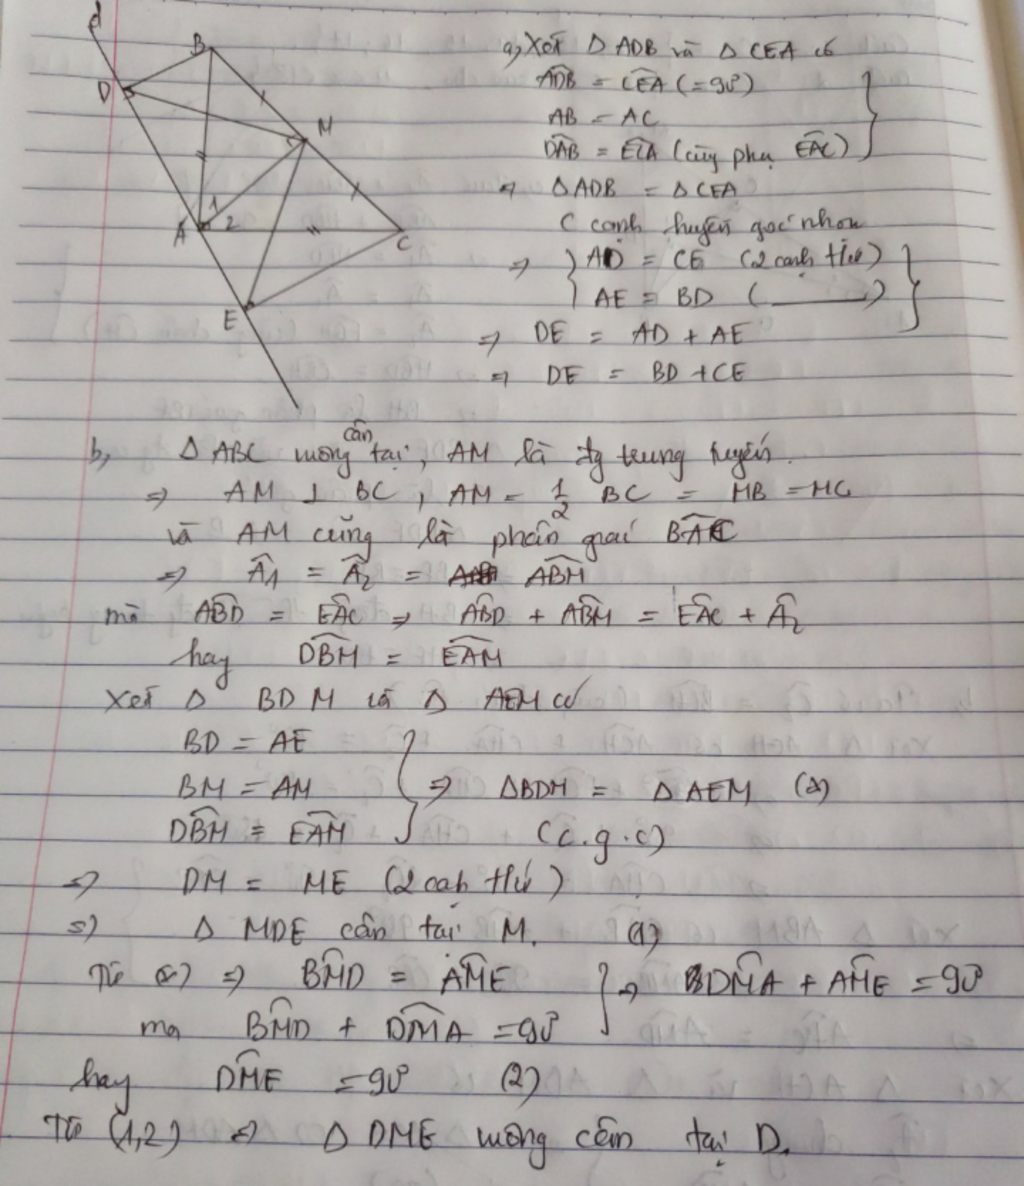 d
B
D
M
A
1
2
C
E
a, Xét Δ ADB và Δ CEA có
ADB̂ = CEÂ (= 90°)
AB = AC
DAB̂ = ECÂ (cùng phụ EAĈ)
⇒ Δ ADB = Δ CEA
( cạnh huyền góc nhọn
⇒ AD = CE (2 cạnh t/ư)
AE = BD ( ——— )
⇒ DE = AD + AE
⇒ DE = BD + CE
b, Δ ABC vuông cân tại, AM là đg trung tuyến.
⇒ AM ⊥ BC, AM = 1/2 BC = MB = MC
và AM cũng là phân giác BAĈ
⇒ Â1 = Â2 = ABM̂
mà ABD̂ = EAĈ ⇒ ABD̂ + ABM̂ = EAĈ + Â2
hay DBM̂ = EAM̂
Xét Δ BDM và Δ AEM có
BD = AE
BM = AM ⇒ ΔBDM = ΔAEM (*)
DBM̂ = EAM̂ (c.g.c)
⇒ DM = ME (2 cah t/ư)
⇒ Δ MDE cân tại M. (1)
Từ (*) ⇒ BMD̂ = AMÊ ⇒ DMÂ + AMÊ = 90°
ma BMD̂ + DMÂ = 90°
hay DMÊ = 90° (2)
Từ (1,2) ⇒ Δ DME vuông cân tại D.